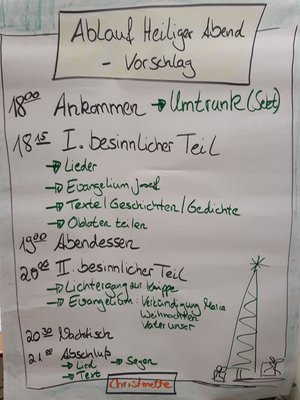 Ablauf Heiliger Abend
- Vorschlag
18⁰⁰ Ankommen → Umtrunk (Sekt)
18¹⁵ I. besinnlicher Teil
→ Lieder
→ Evangelium Josef
→ Texte/Geschichten/Gedichte
→ Oblaten teilen
19⁰⁰ Abendessen
20⁰⁰ II. besinnlicher Teil
→ Lichtergang zur Krippe
→ Evangelium: Verkündigung Maria
Weihnachten
Vater unser
20³⁰ Nachtisch
21⁰⁰ Abschluß
→ Lied → Segen
→ Text
Christmette